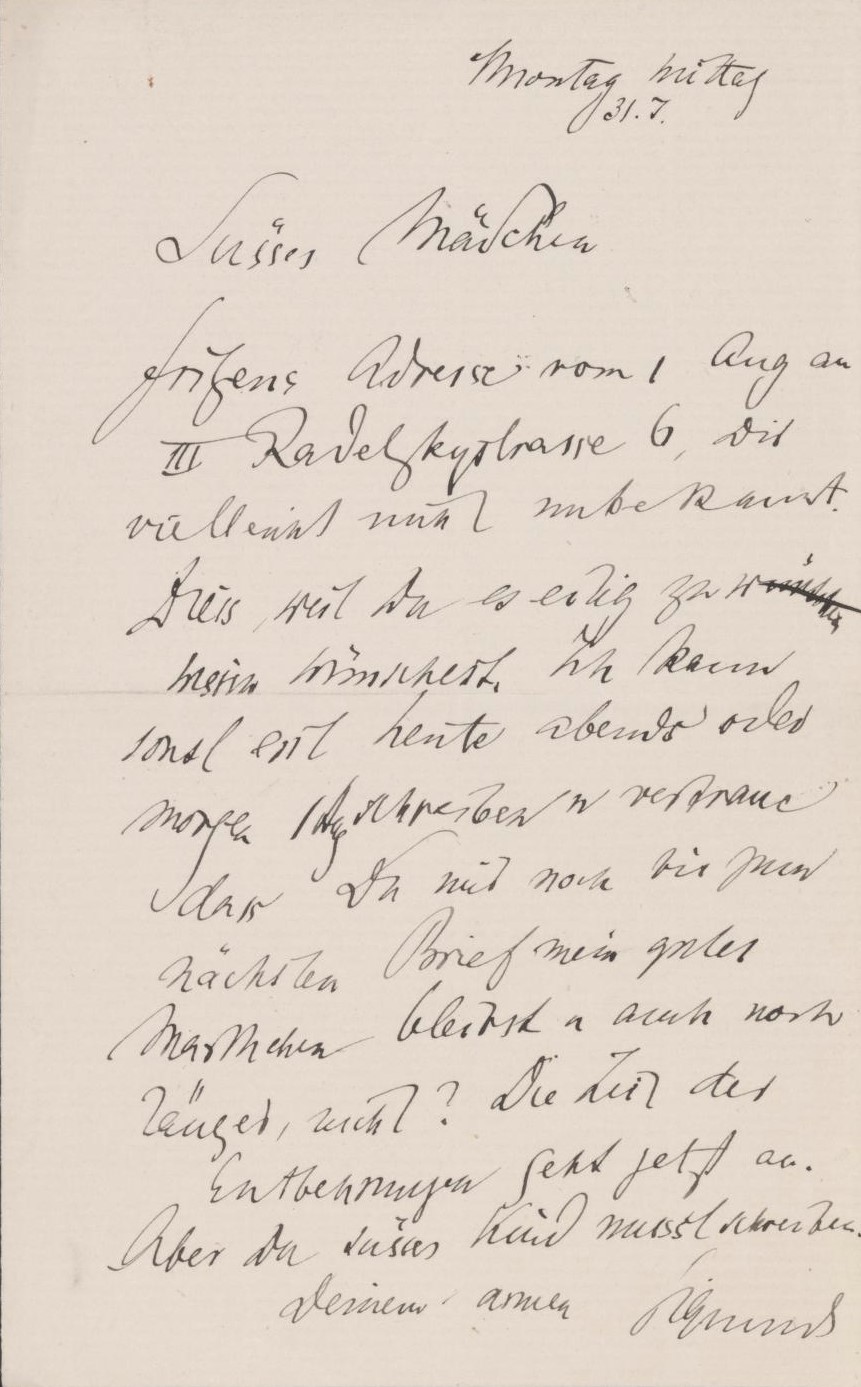 Montag Mittag
31. 7.
Süsses Mädchen
Fritzens Adresse vom 1 Aug an
III Radetzkystrasse 6, Dir
vielleicht nicht unbekannt.
Dies, weil Du es eilig zu
wünschest. Ich kann
sonst erst heute abends oder
morgen schreiben u vertraue
dass Du mir noch bis zum
nächsten Brief mein gutes
Marthchen bleibst u auch noch
länger, nicht? Die Zeit der
Entbehrungen geht jetzt an.
Aber Du süsses Kind musst schreiben.
Deinem armen Sigmund